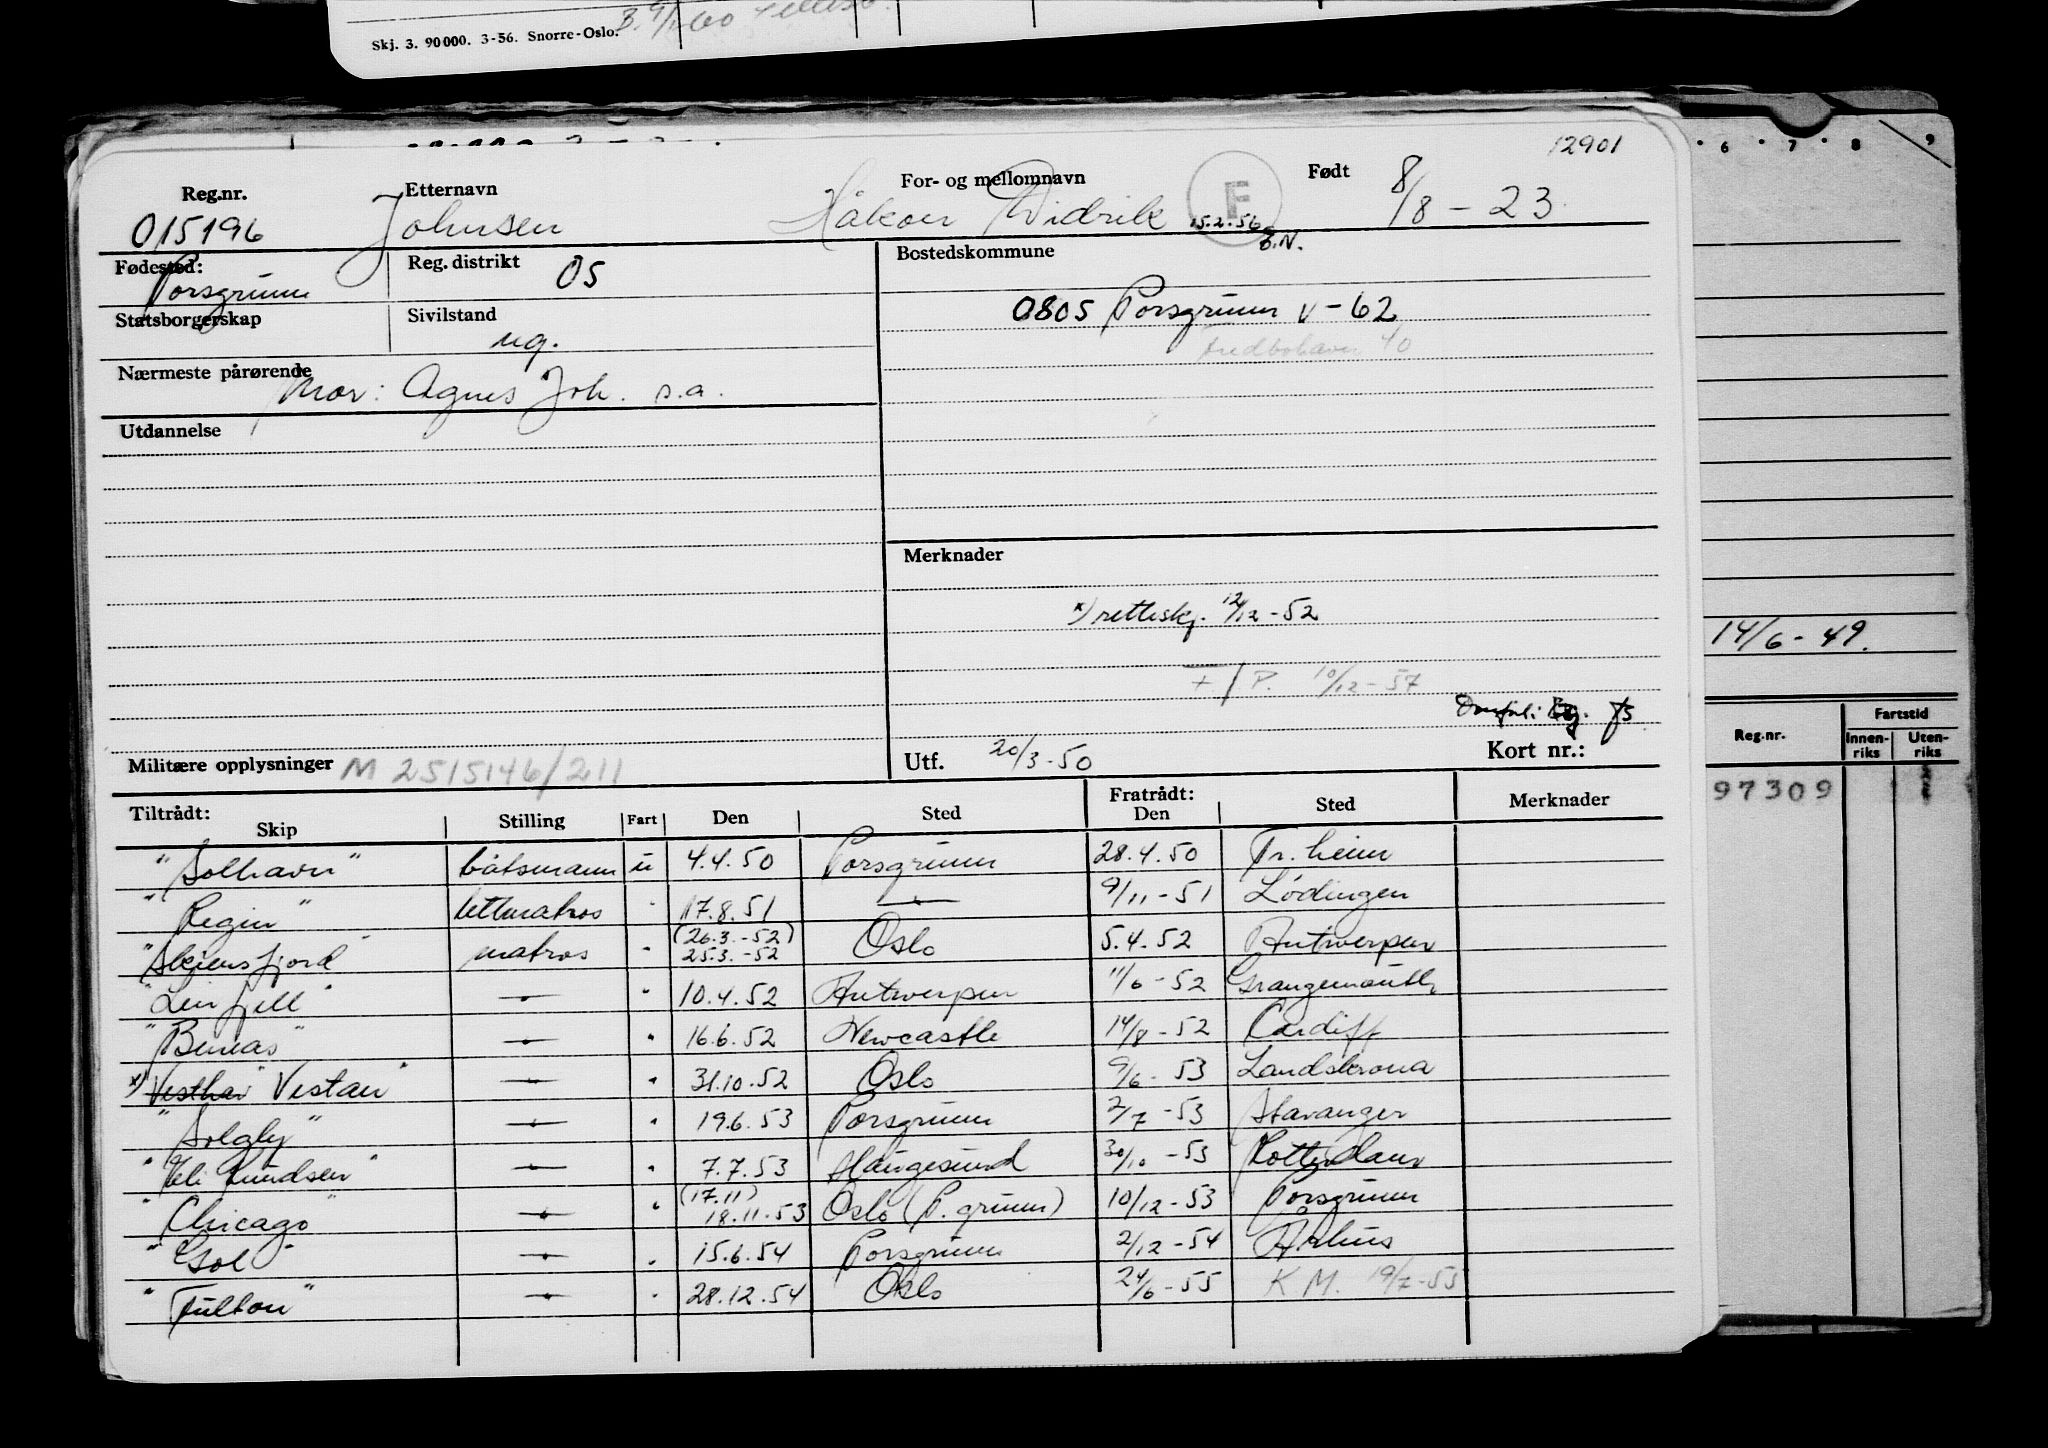 Skj. 3. 90000. 3-56. Snorre-Oslo.
12901
Reg.nr. Etternavn For- og mellomnavn Født
015196 Johnsen Håkon Didrik F 15.2.56 B.N. 8/8 - 23
Fødested: Porsgrunn Reg. distrikt 05 Bostedskommune
Statsborgerskap Sivilstand ug. 0805 Porsgrunn V-62
40
Nærmeste pårørende Mor: Agnes Joh. s.a.
Utdannelse
Merknader
x) rettiskj. 12/12 - 52
+ / P. 10/12 - 57
Militære opplysninger M 2515146/211 Utf. 20/3 - 50 Kort nr.:
Tiltrådt: Skip Stilling Fart Den Sted Fratrådt: Den Sted Merknader
"Solhavn" båtsmann u 4.4.50 Porsgrunn 28.4.50 Tr.heim
"Regin" lettmatros " 17.8.51 —"— 9/11 - 51 Lødingen
"Skiensfjord" matros " (26.3.-52) 25.3.-52 Oslo 5.4.52 Antwerpen
"Linfjell" —"— " 10.4.52 Antwerpen 11/6 - 52 Grangemouth
"Buneas" —"— " 16.6.52 Newcastle 14/8 - 52 Cardiff
x) "Vesthav" Vestan" —"— " 31.10.52 Oslo 9/6 - 53 Landskrona
"Solgly" —"— " 19.6.53 Porsgrunn 2/7 - 53 Stavanger
"Eli Knudsen" —"— " 7.7.53 Haugesund 30/10 - 53 Rotterdam
"Chicago" —"— " (17.11) 18.11.53 Oslo (P.grunn) 10/12 - 53 Porsgrunn
"Gol" —"— " 15.6.54 Porsgrunn 2/12 - 54 Århus
"Fulton" —"— " 28.12.54 Oslo 24/6 - 55 K M. 19/7 - 55
6 . 7 . 8 9
14/6 - 49.
Reg.nr. Fartstid
Innen-riks Uten-riks
97309